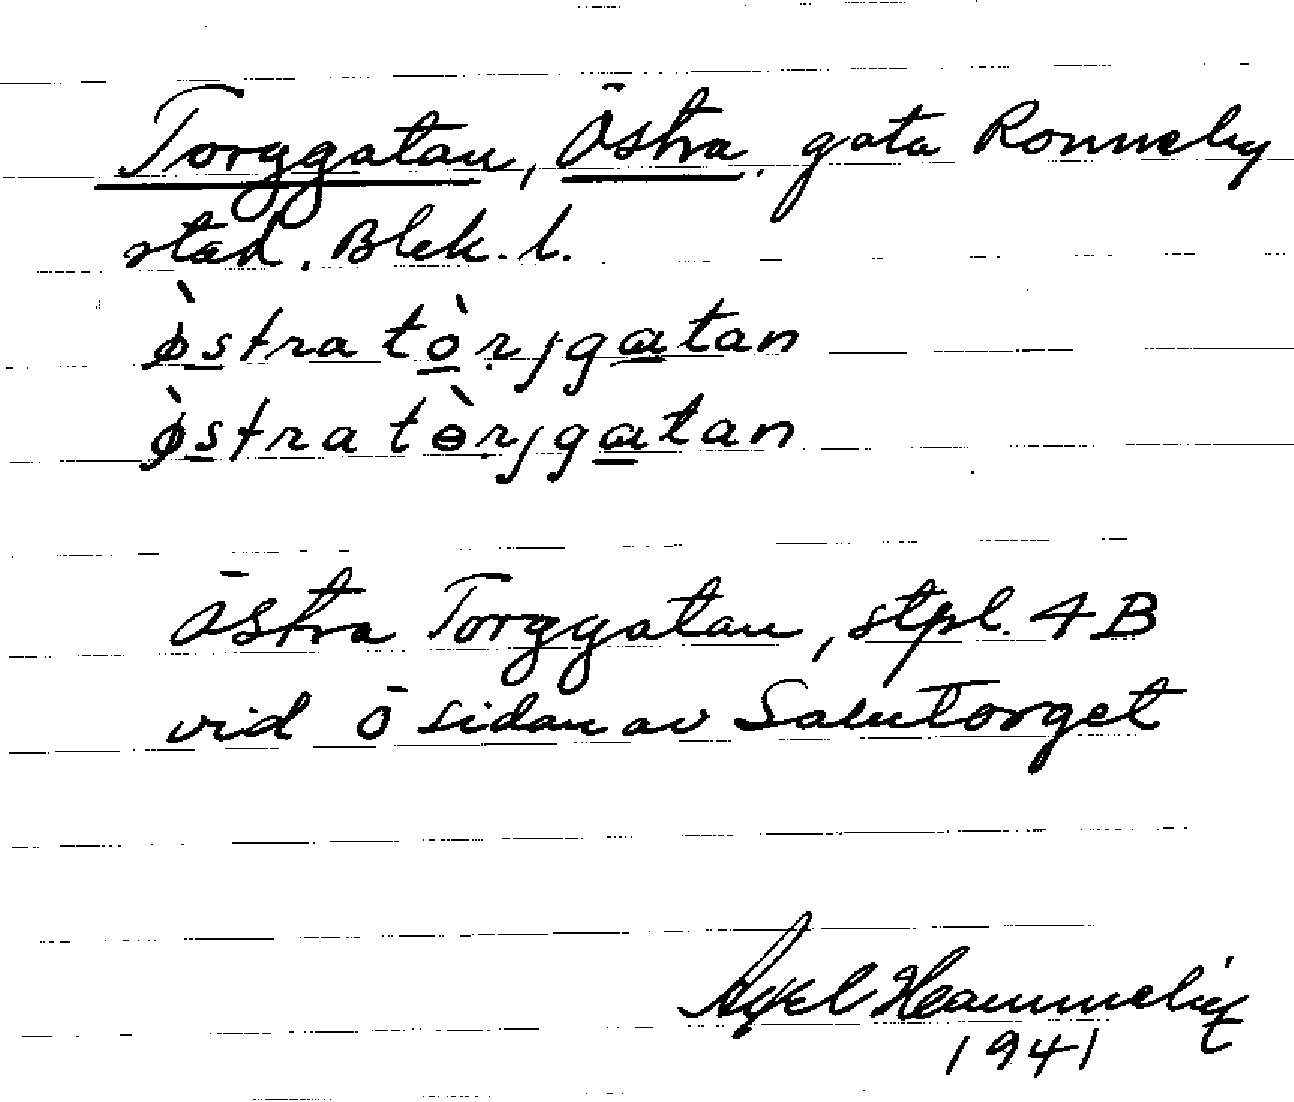 Torggatan, Östra. gata Ronneby
stad. Blek. l.
ø̀stra tòrjgatan
ø̀stra tɵ̀rjgatan
Östra Torggatan, stpl. 4B
vid ö sidan av Salutorget
Axel
1941